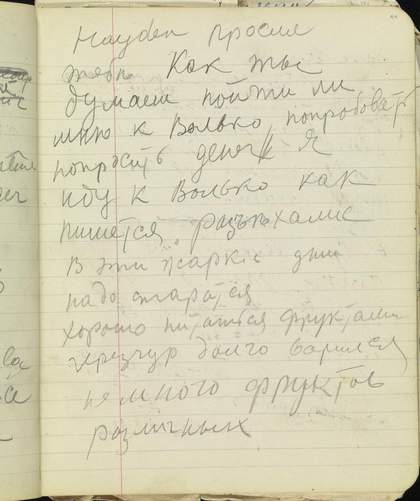 Hayden просил
тебя Как ты
думаеш пойти ли
мню к Валько попробовать
попрасить денег Я
иду к Валько как
пишется разъехалис
В эти жаркие дни
надо старатся
хорошо питатся фруктами
черезчур долго варился
немного фруктов
различных